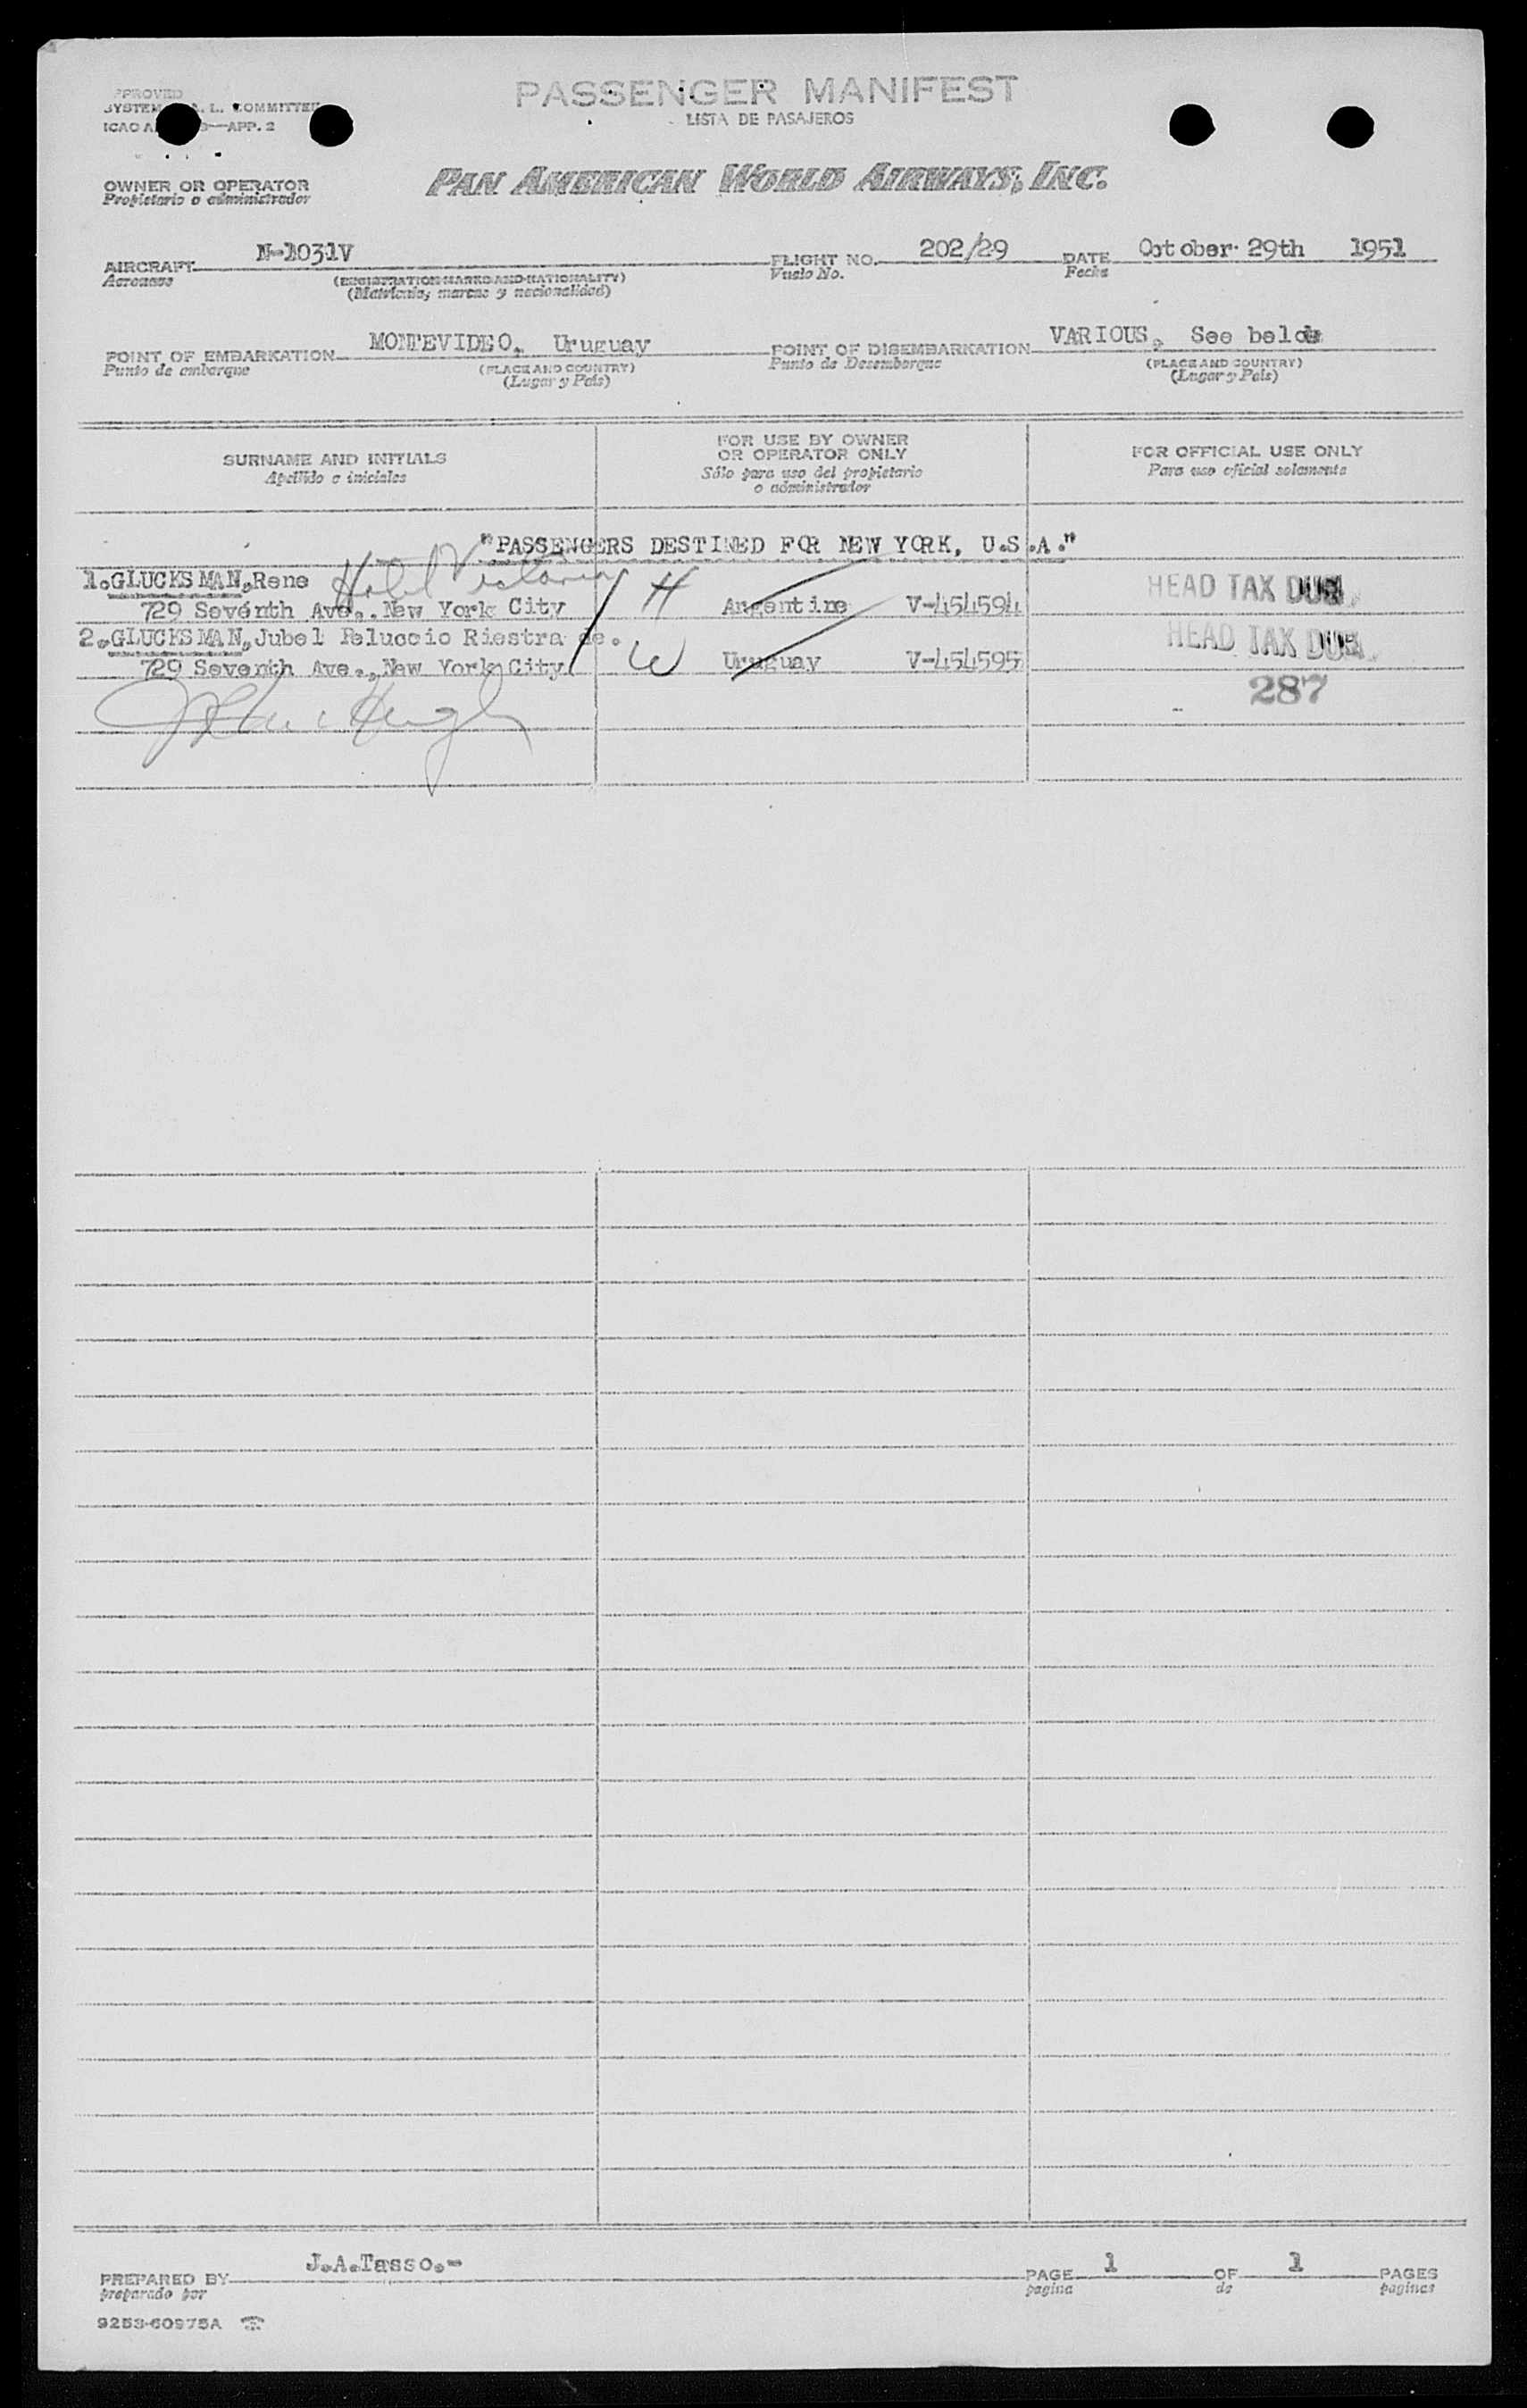 PASSENGER MANIFEST
LISTA DE PASAJEROS
APP. 2
PAN AMERICAN WORLD AIRWAYS, INC.
OWNER OR OPERATOR
Propietario o administrador
AIRCRAFT N-1031V FLIGHT NO. 202/29 DATE October 29th 1951
Aeronave (REGISTRATION MARKS AND NATIONALITY) Vuelo No. Fecha
(Matrícula, marcas y nacionalidad)
POINT OF EMBARKATION MONTEVIDEO, Uruguay POINT OF DISEMBARKATION VARIOUS, See below
Punto de embarque (PLACE AND COUNTRY) Punto de Desembarque (PLACE AND COUNTRY)
(Lugar y País) (Lugar y País)
SURNAME AND INITIALS FOR USE BY OWNER OR OPERATOR ONLY FOR OFFICIAL USE ONLY
Apellido e iniciales Sólo para uso del propietario o administrador Para uso oficial solamente
"PASSENGERS DESTINED FOR NEW YORK, U.S.A."
1.GLUCKSMAN,Rene Hotel Victoria HEAD TAX DUE
729 Seventh Ave., New York City H Argentine V-454594
2.GLUCKSMAN,Jubel Peluccio Riestra de. HEAD TAX DUE
729 Seventh Ave.,New York City W Uruguay V-454595
287
PREPARED BY J.A.Tasso.- PAGE 1 OF 1 PAGES
preparado por pagina de paginas
9253-60975A